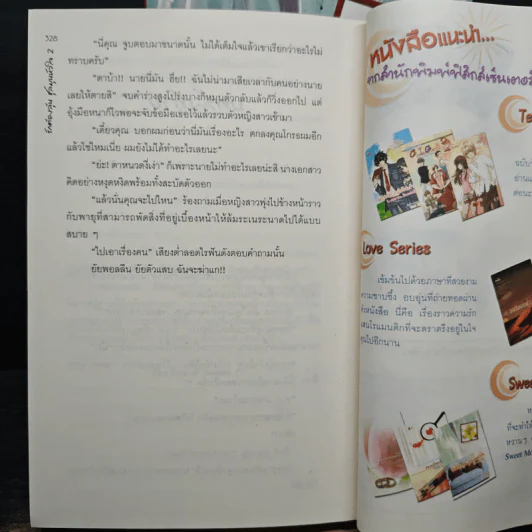 328
"นี่คุณ จูบตอบมาขนาดนั้น ไม่ได้เต็มใจแล้วเขาเรียกว่าอะไรไม่
ทราบครับ"
"ตาบ้า!! นายนี่มัน ฮึ่ย!! ฉันไม่น่ามาเสียเวลากับคนอย่างนาย
เลยให้ตายสิ" จบคำร่างสูงโปร่งบางก็หมุนตัวกลับแล้วก็วิ่งออกไป แต่
ยุ้งมือหนาก็ไวพอจะจับข้อมือเธอไว้แล้วรวบตัวหญิงสาวเข้ามา
"เดี๋ยวคุณ บอกผมก่อนว่านี่มันเรื่องอะไร ตกลงคุณโกรธผมอีก
แล้วใช่ไหมเนี่ย ผมยังไม่ได้ทำอะไรเลยนะ"
"ย่ะ! ตาหนวดงี่เง่า" ก็เพราะนายไม่ทำอะไรเลยน่ะสิ นางเอกสาว
คิดอย่างหงุดหงิดพร้อมทั้งสะบัดตัวออก
"แล้วนั่นคุณจะไปไหน" ร้องถามเมื่อหญิงสาวพุ่งไปข้างหน้าราว
กับพายุที่สามารถพัดสิ่งที่อยู่เบื้องหน้าให้ล้มระเนระนาดไปได้แบบ
สบาย ๆ
"ไปเอาเรื่องคน" เสียงต่ำลอดไรฟันดังตอบคำถามนั้น
ยัยพอลลีน ยัยตัวแสบ ฉันจะฆ่าแก!!
หนังสือแนะนำ...
จากสำนักพิมพ์ฟิสิกส์เซ็นเตอร์
Te
Love Series
เข้มข้นไปด้วยภาษาที่สวยงาม
ความซาบซึ้ง อบอุ่นที่ถ่ายทอดผ่าน
ตัวหนังสือ นี่คือ เรื่องราวความรัก
แสนโรแมนติกที่จะตราตรึงอยู่ในใจ
คุณไปอีกนาน
Swee
ที่จะทำให้
Sweet Mo